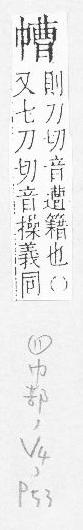 㡟
則刀切音遭籍也()
又七刀切音操義同
(11)巾部,V4,
P53